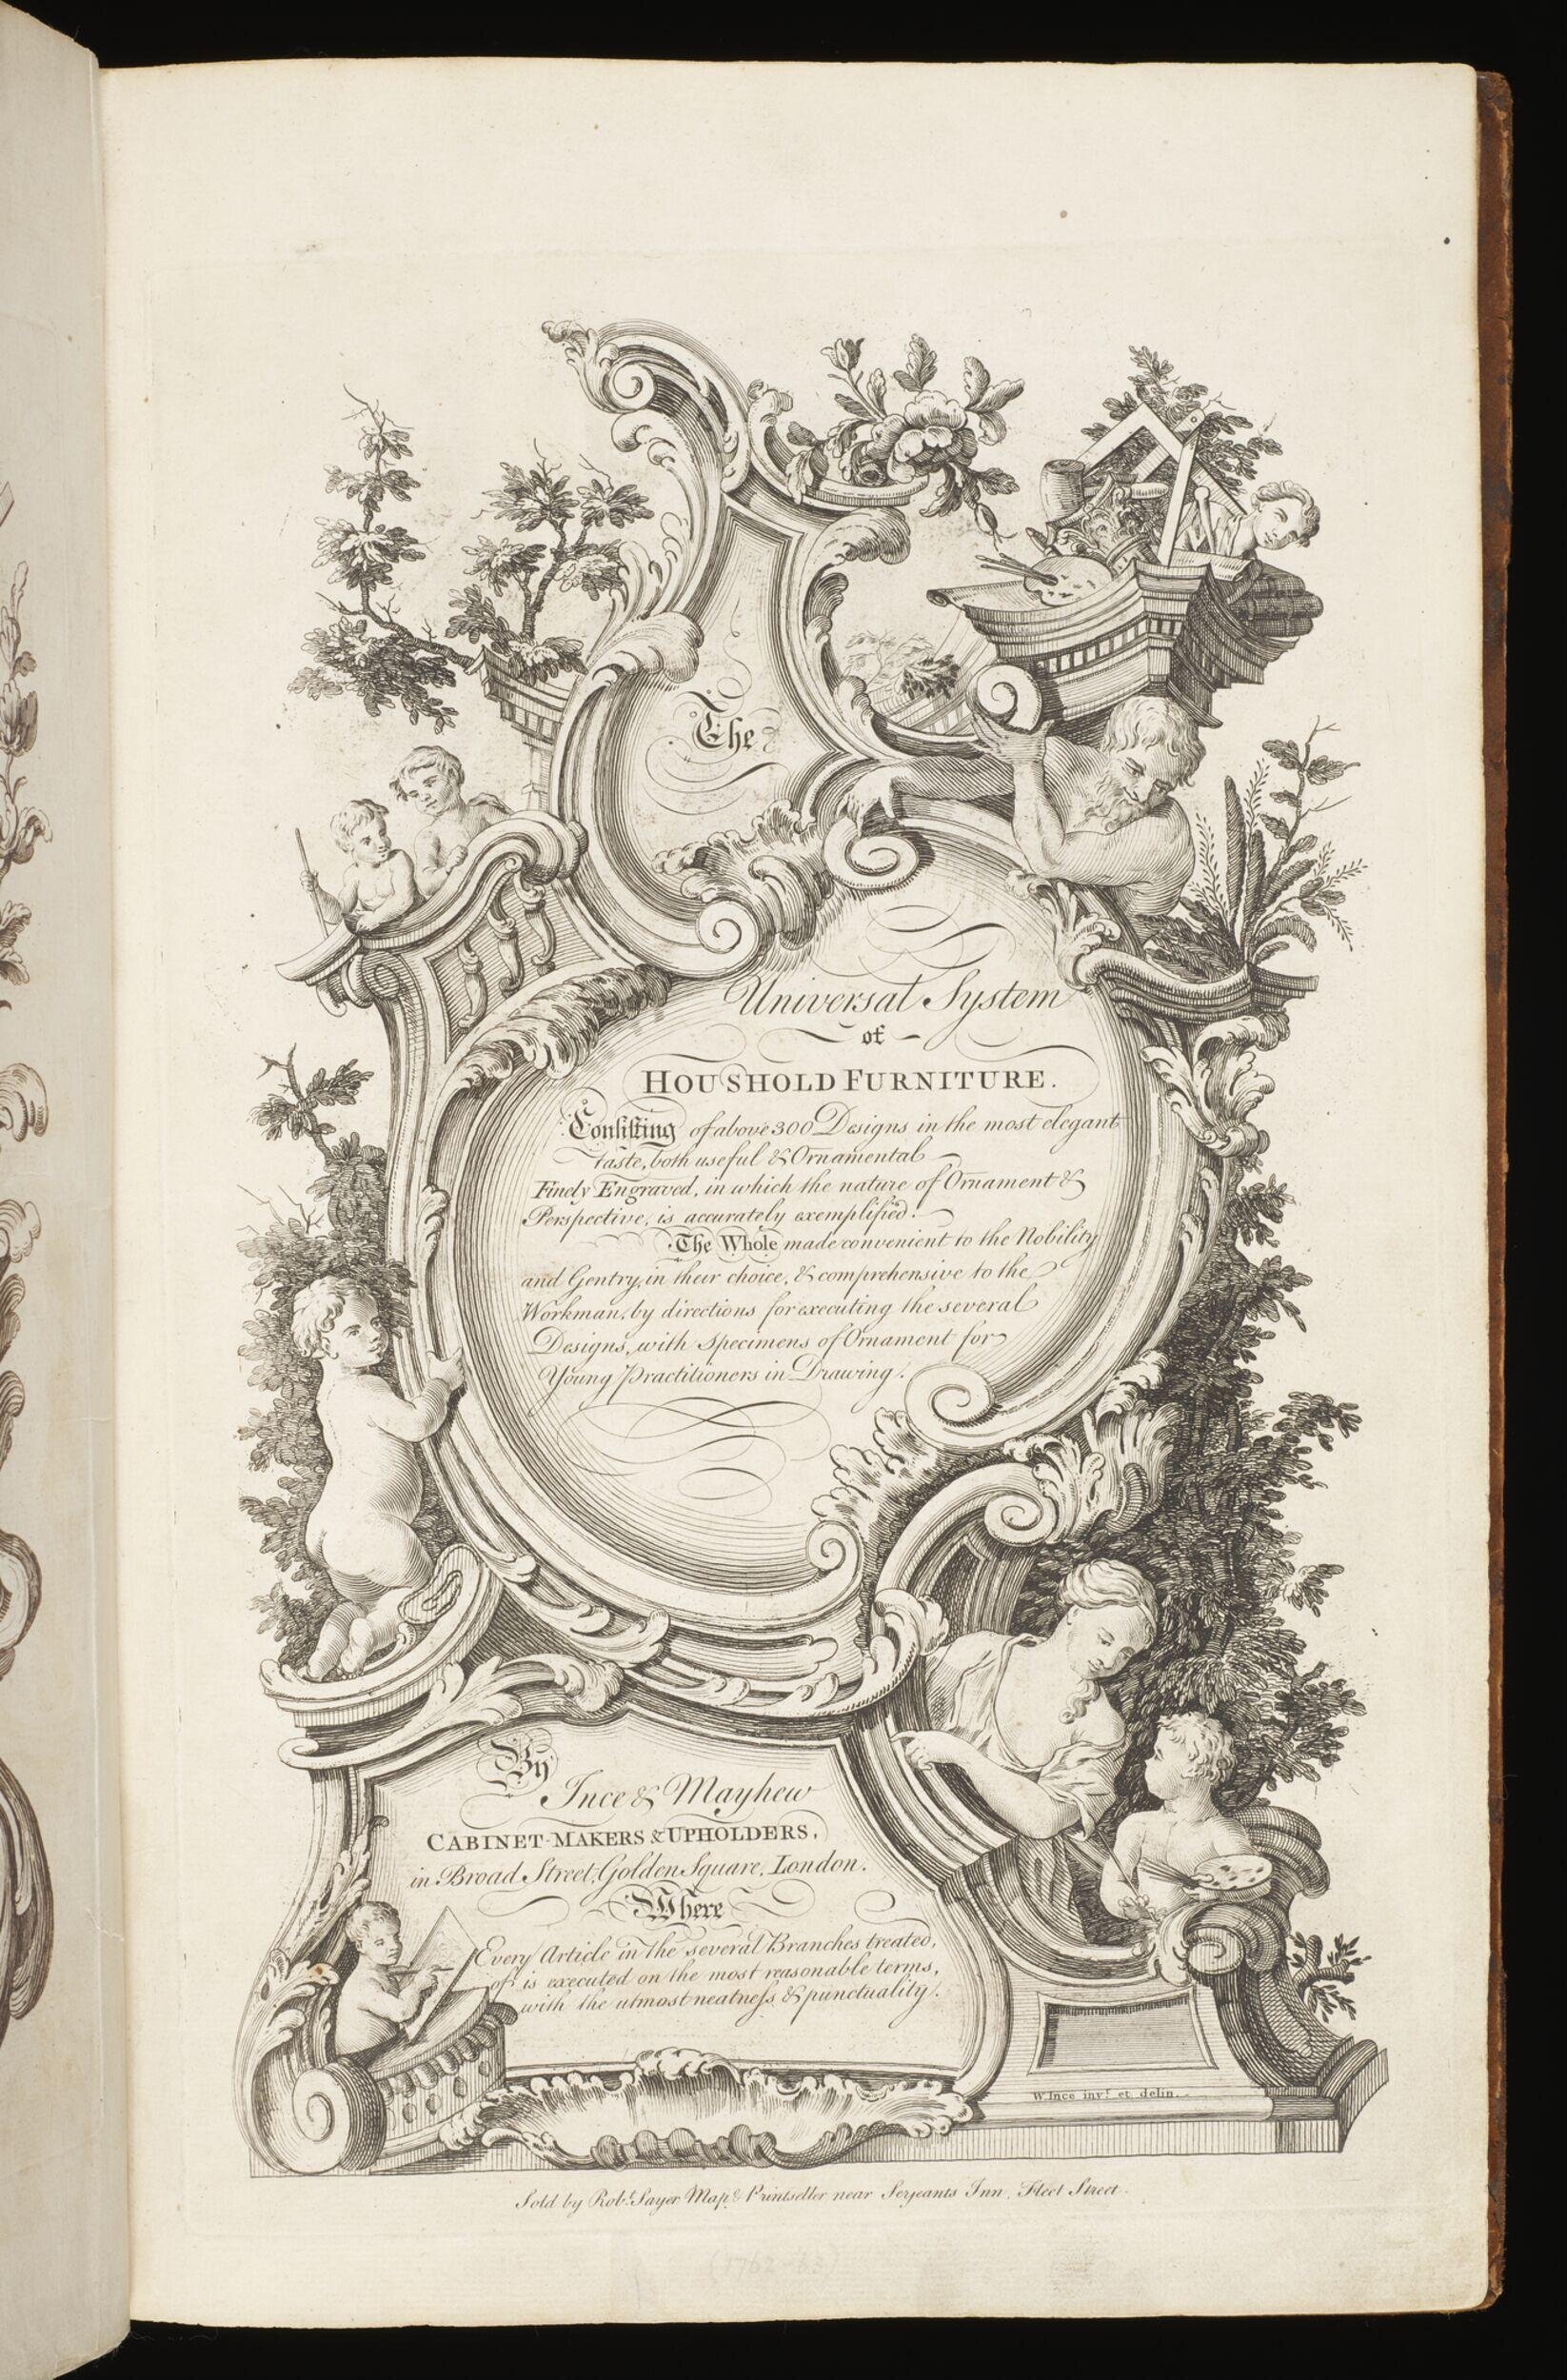 The
Universal System
of
HOUSHOLD FURNITURE.
Consisting of above 300 Designs in the most elegant
taste, both useful & Ornamental
Finely Engraved, in which the nature of Ornament &
Perspective, is accurately exemplified.
The Whole made convenient to the Nobility
and Gentry, in their choice, & comprehensive to the
Workman, by directions for executing the several
Designs, with specimens of Ornament for
Young Practitioners in Drawing.
By
Ince & Mayhew
CABINET-MAKERS & UPHOLDERS,
in Broad Street, Golden Square, London.
Where
Every Article in the several Branches treated,
of, is executed on the most reasonable terms,
with the utmost neatness & punctuality.
W. Ince invt. et delin.
Sold by Robt. Sayer Map & Printseller near Serjeants Inn, Fleet Street.
(1762-63)